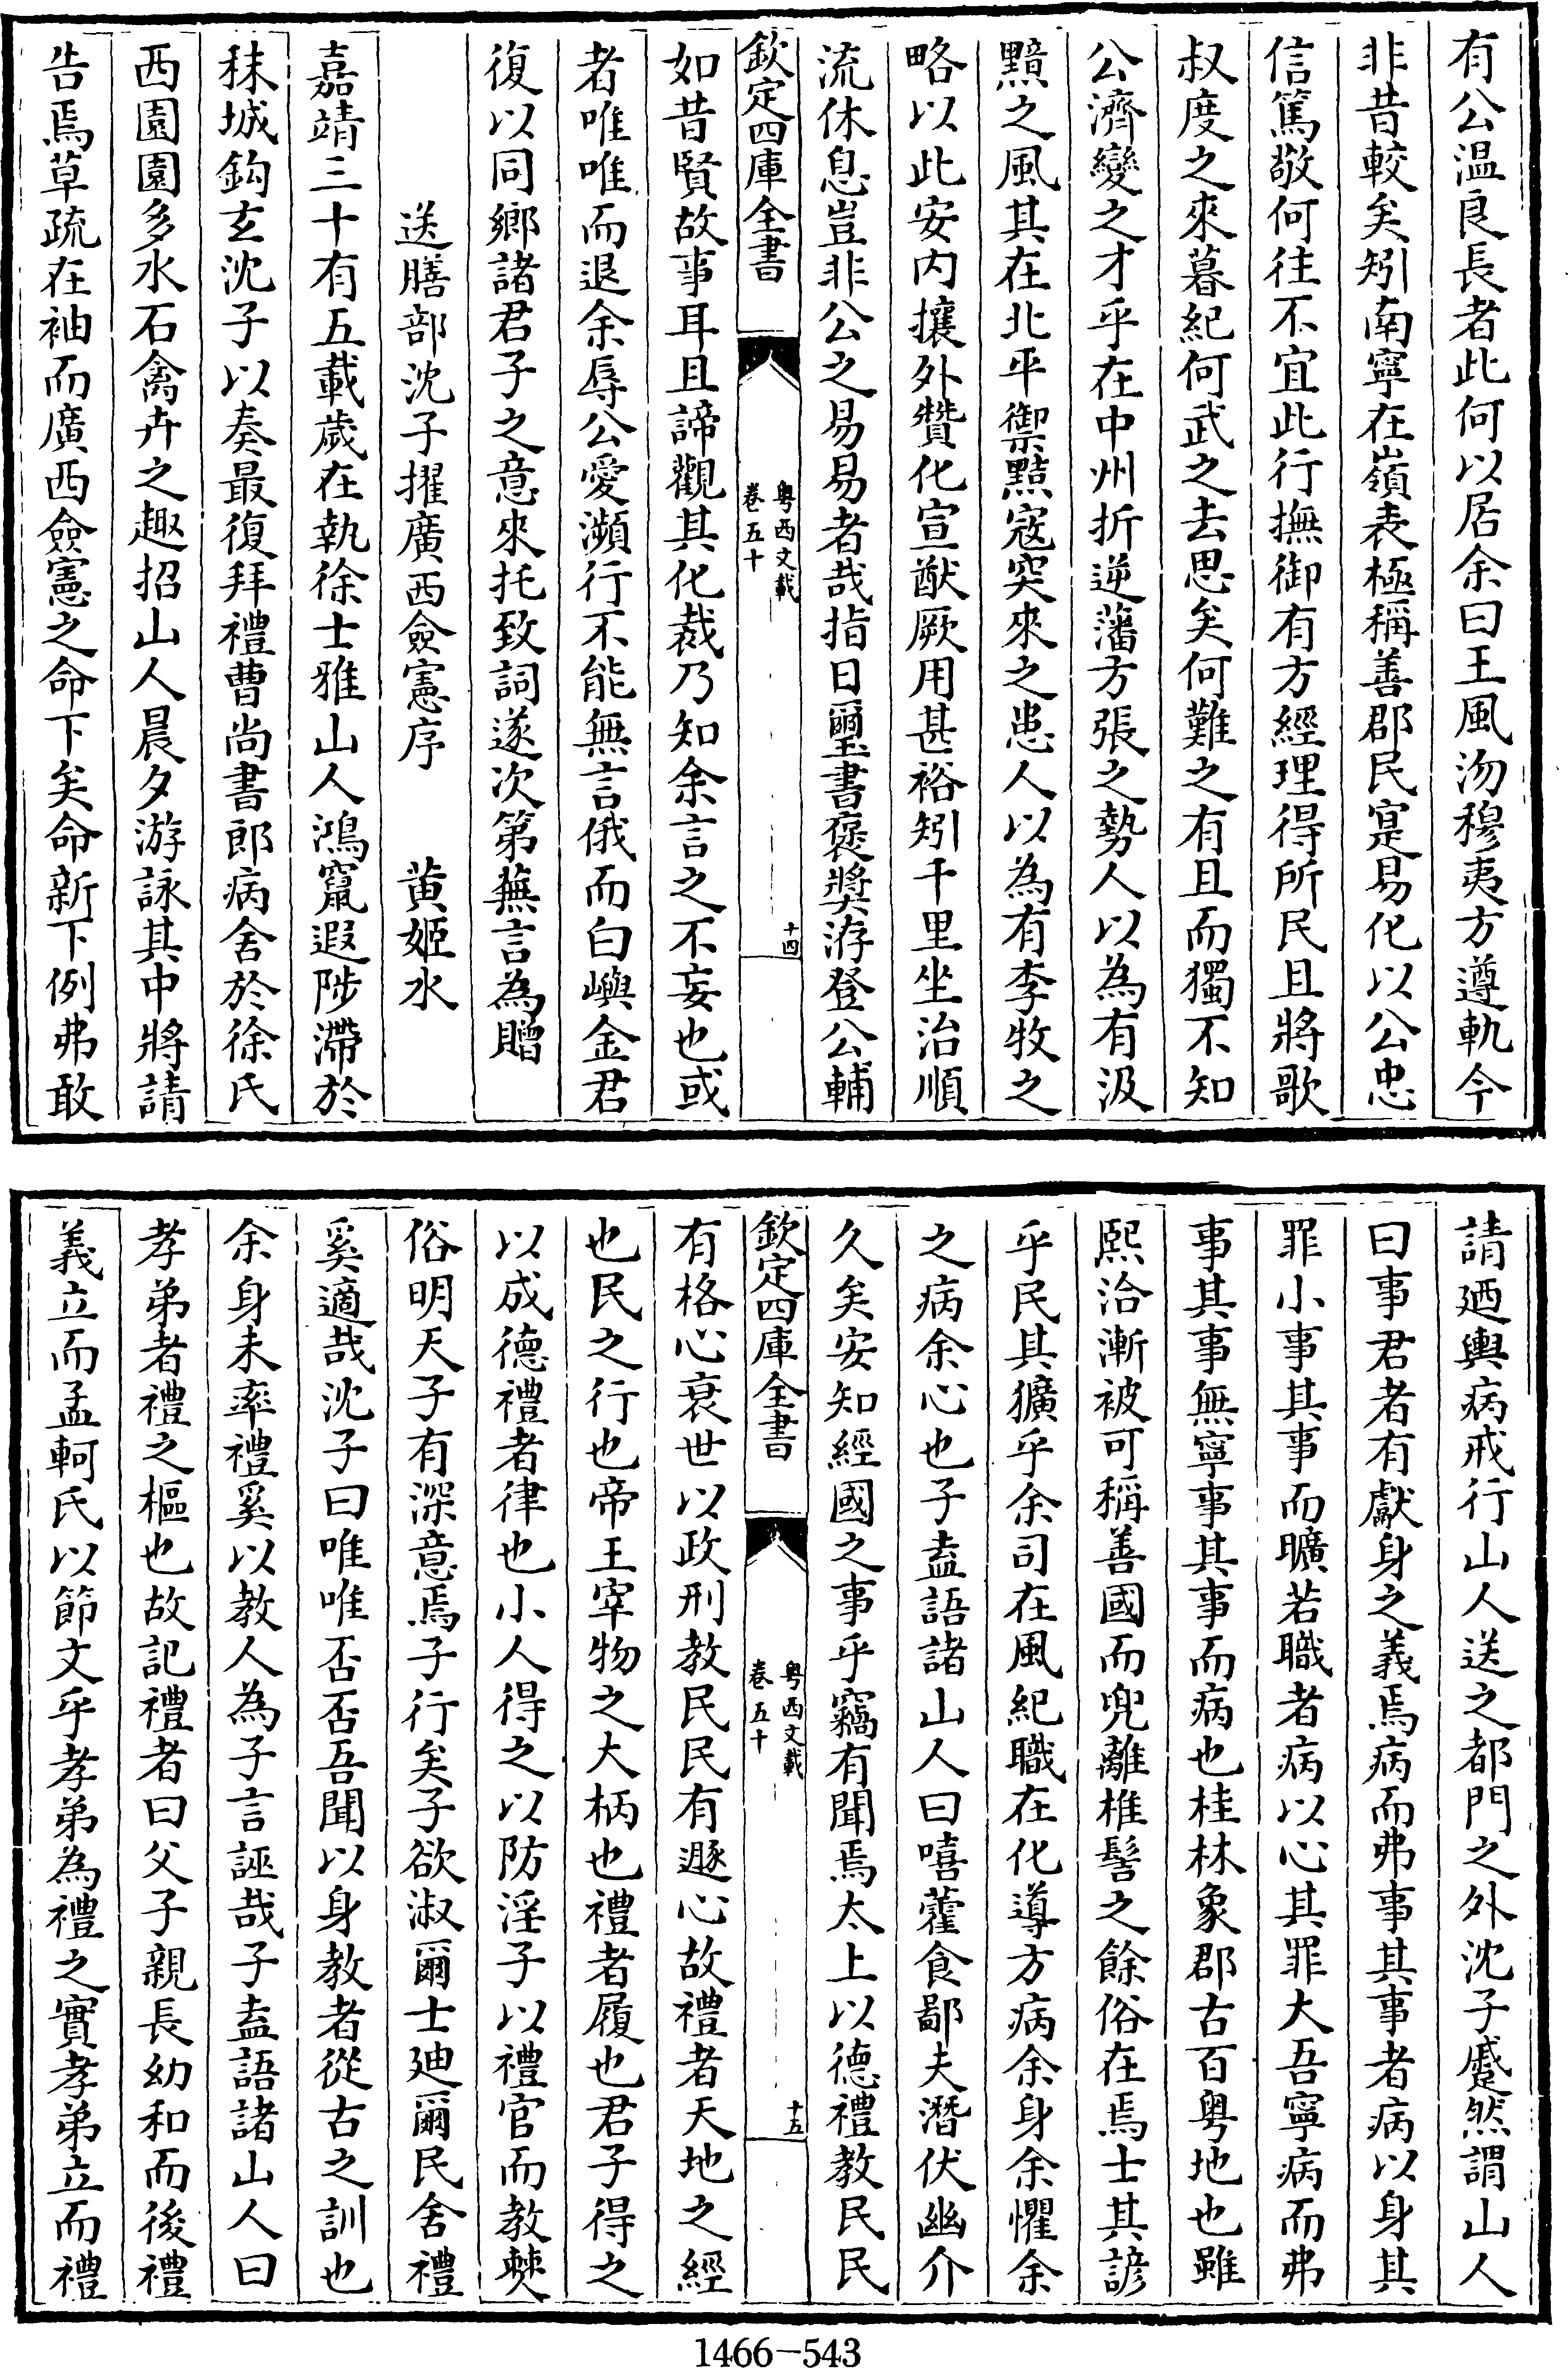 有公温良長者此何以居余曰王風沕穆夷方遵軌今
非昔較矣矧南寧在嶺表極稱善郡民寔易化以公忠
信篤敬何往不宜此行撫御有方經理得所民且將歌
叔度之來暮紀何武之去思矣何難之有且而獨不知
公濟變之才乎在中州折逆藩方張之勢人以為有汲
黯之風其在北平禦黠寇突來之患人以為有李牧之
略以此安内攘外贊化宣猷厥用甚裕矧千里坐治順
流休息豈非公之易易者哉指日璽書褒奬洊登公輔
欽定四庫全書
粤西文載
卷五十
十四
如昔賢故事耳且諦觀其化裁乃知余言之不妄也或
者唯唯而退余辱公愛瀕行不能無言俄而白嶼金君
復以同鄉諸君子之意來托致詞遂次第蕪言為贈
送膳部沈子擢廣西僉憲序 黄姬水
嘉靖三十有五載歲在執徐士雅山人鴻竄遐陟滯於
秣城鈎玄沈子以奏最復拜禮曹尚書郎病舍於徐氏
西園園多水石禽卉之趣招山人晨夕游詠其中將請
告焉草疏在袖而廣西僉憲之命下矣命新下例弗敢
請廼輿病戒行山人送之都門之外沈子蹙然謂山人
曰事君者有獻身之義焉病而弗事其事者病以身其
罪小事其事而曠若職者病以心其罪大吾寧病而弗
事其事無寧事其事而病也桂林象郡古百粤地也雖
熙洽漸被可稱善國而兜離椎髻之餘俗在焉士其諺
乎民其獷乎余司在風紀職在化導方病余身余懼余
之病余心也子盍語諸山人曰嘻藿食鄙夫潛伏幽介
久矣安知經國之事乎竊有聞焉太上以德禮教民民
欽定四庫全書
粤西文載
卷五十
十五
有格心衰世以政刑教民民有遯心故禮者天地之經
也民之行也帝王宰物之大柄也禮者履也君子得之
以成德禮者律也小人得之以防淫子以禮官而教僰
俗明天子有深意焉子行矣子欲淑爾士廸爾民舍禮
奚適哉沈子曰唯唯否否吾聞以身教者從古之訓也
余身未率禮奚以教人為子言誣哉子盍語諸山人曰
孝弟者禮之樞也故記禮者曰父子親長幼和而後禮
義立而孟軻氏以節文乎孝弟為禮之實孝弟立而禮
1466-543